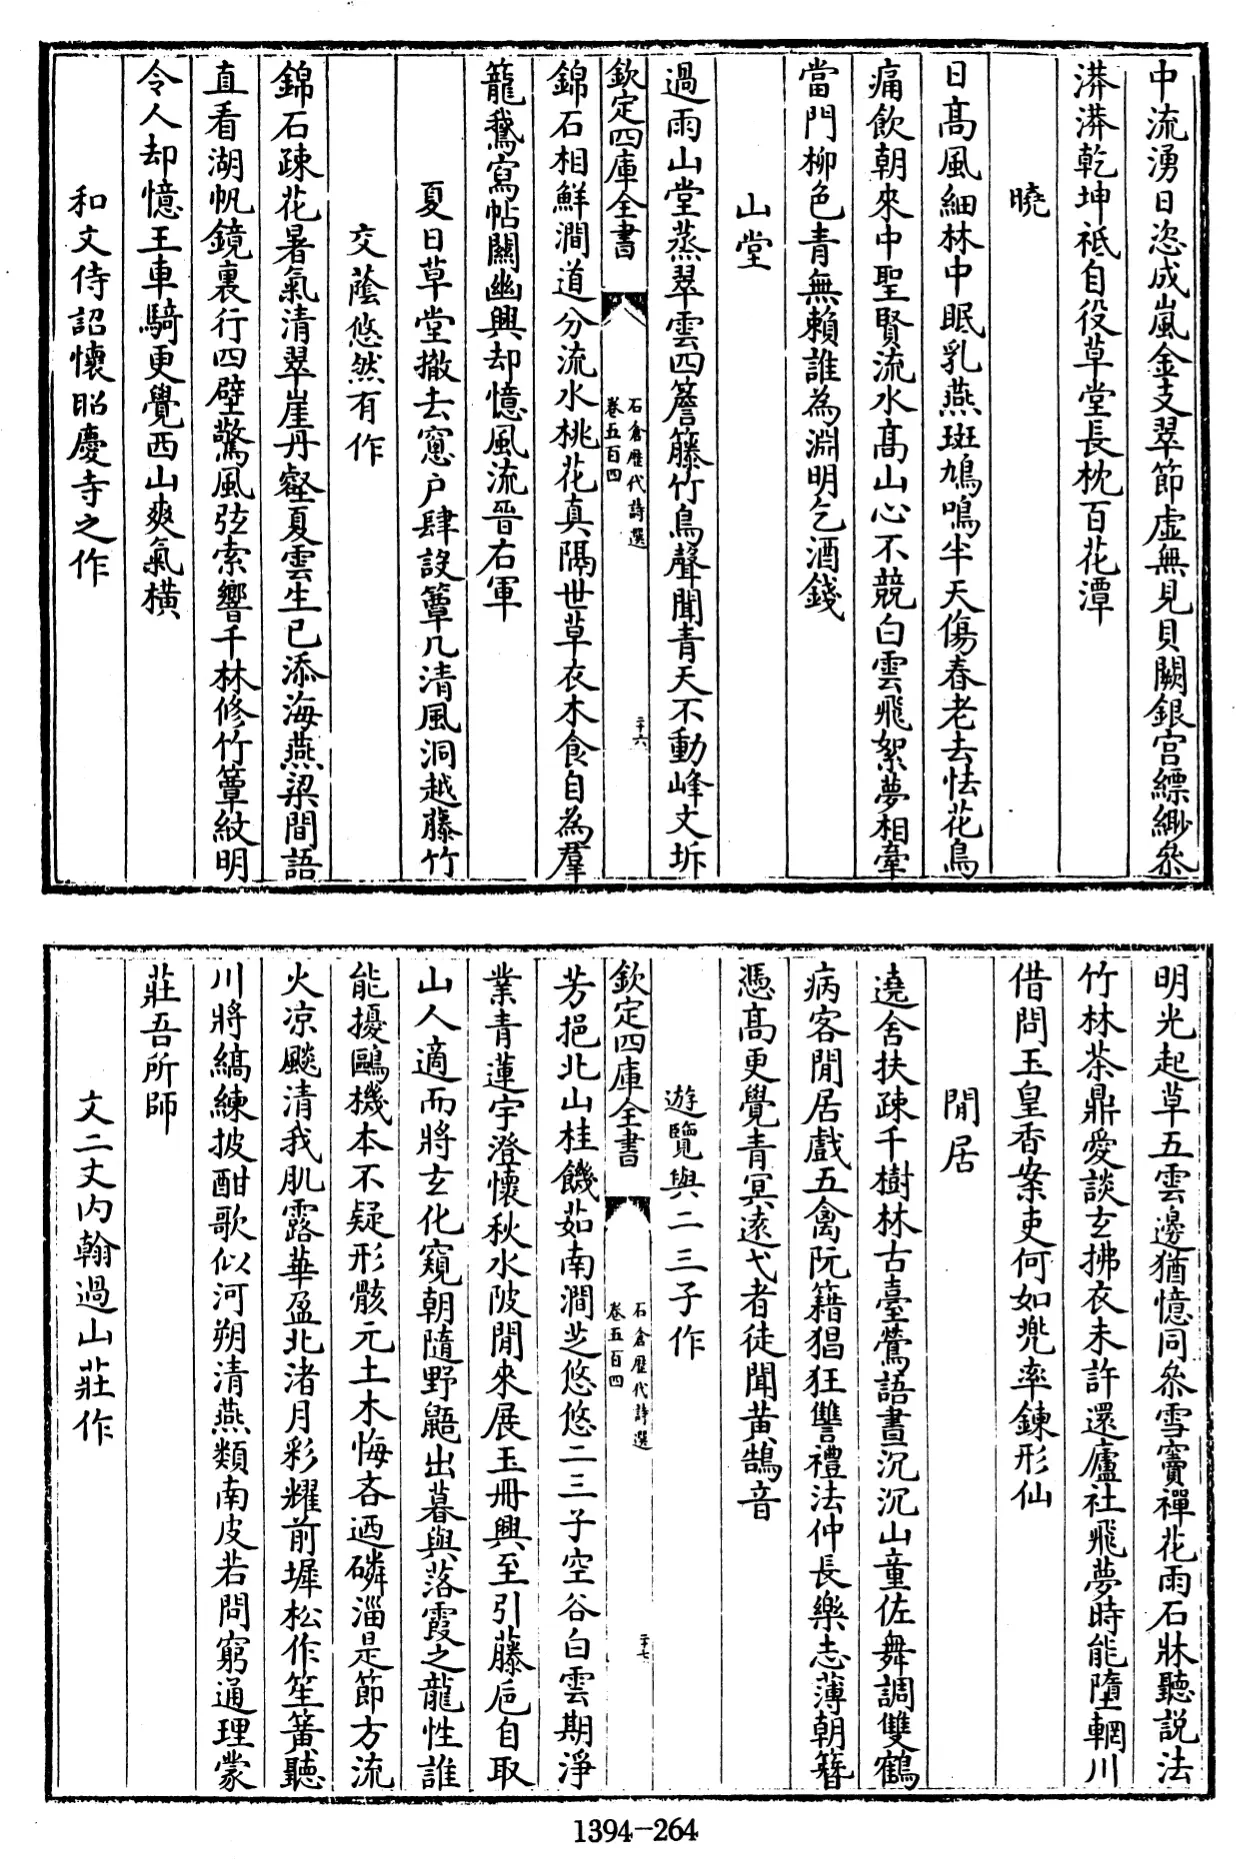 中流湧日恣成嵐金支翠節虛無見貝闕銀宫縹緲叅
漭漭乾坤祗自役草堂長枕百花潭
曉
日髙風細林中眠乳燕斑鳩鳴半天傷春老去怯花鳥
痛飲朝來中聖賢流水髙山心不競白雲飛絮夢相牽
當門柳色青無賴誰為淵明乞酒錢
山堂
過雨山堂蒸翠雲四簷籐竹鳥聲聞青天不動峰文坼
欽定四庫全書
石倉歷代詩選
卷五百四
二十六
錦石相鮮澗道分流水桃花真隔世草衣木食自為羣
籠鵞寫帖關幽興却憶風流晉右軍
夏日草堂撤去窻户肆設簟几清風洞越藤竹
交蔭悠然有作
錦石疎花暑氣清翠崖丹壑夏雲生已添海燕梁間語
直看湖帆鏡裏行四壁驚風弦索響千林修竹簟紋明
令人却憶王車騎更覺西山爽氣橫
和文侍詔懷昭慶寺之作
明光起草五雲邊猶憶同叅雪竇禪花雨石牀聽説法
竹林茶鼎愛談玄拂衣未許還廬社飛夢時能墮輞川
借問玉皇香案吏何如兜率鍊形仙
閒居
遶舍扶疎千樹林古臺鶯語晝沉沉山童佐舞調雙鶴
病客閒居戲五禽阮籍猖狂讐禮法仲長樂志薄朝簪
憑髙更覺青冥遠弋者徒聞黄鵠音
遊覽與二三子作
欽定四庫全書
石倉歷代詩選
卷五百四
二十七
芳挹北山桂饑茹南澗芝悠悠二三子空谷白雲期淨
業青蓮宇澄懷秋水陂閒來展玉冊興至引藤卮自取
山人適而將玄化窺朝隨野鼯出暮與落霞之龍性誰
能擾鷗機本不疑形骸元土木悔吝迺磷淄是節方流
火凉飈清我肌露華盈北渚月彩耀前墀松作笙簧聽
川將縞練披酣歌似河朔清燕類南皮若問窮通理蒙
莊吾所師
文二丈内翰過山莊作
1394-264